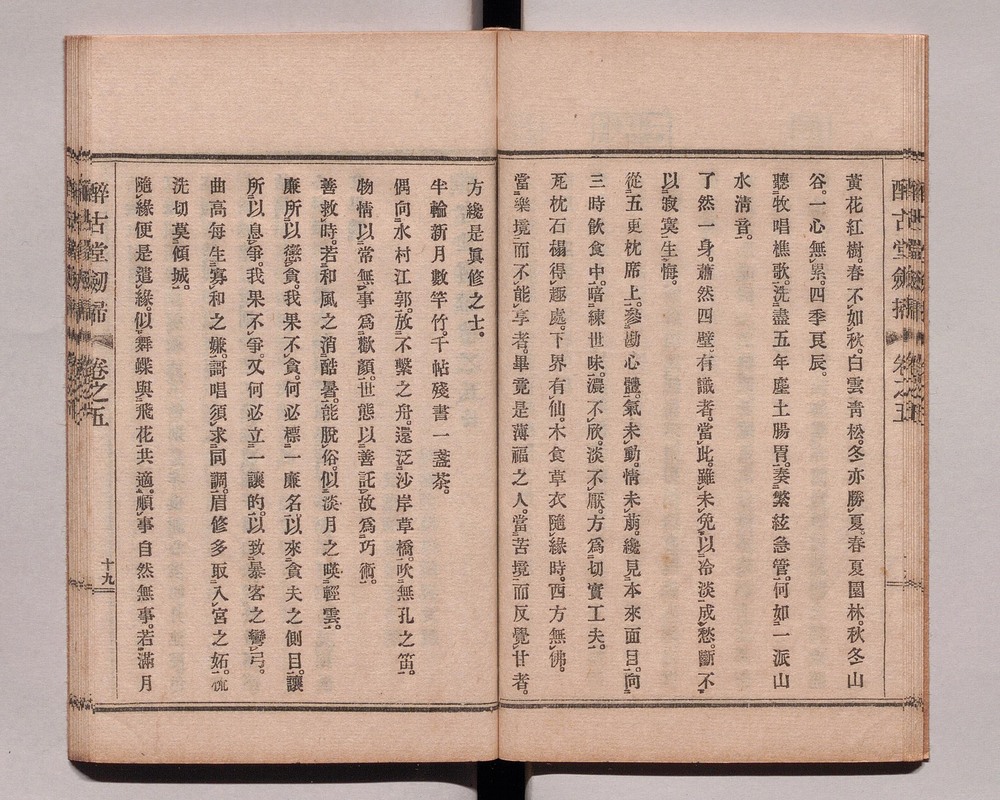 黃花紅樹。春不如秋。白雲靑松。冬亦勝夏。春夏園林。秋冬山
谷。一心無累。四季良辰。
聽牧唱樵歌。洗盡五年塵土腸胃。奏繁絃急管。何如一派山
水淸音。
了然一身。蕭然四壁。有識者。當此。雖未免以冷淡成愁。斷不
以寂寞生悔。
從五更枕席上。參勘心體。氣未動。情未萠。纔見本來面目。向
三時飮食中。暗練世味。濃不欣。淡不厭。方爲切實工夫。
瓦枕石榻。得趣處。下界有仙。木食草衣。隨緣時。西方無佛。
當樂境而不能享者。畢竟是薄福之人。當苦境而反覺甘者。
方纔是眞修之士。
半輪新月數竿竹。千帖殘書一盞茶。
偶向水村江郭。放不繫之舟。還泛沙岸草橋。吹無孔之笛。
物情以常無事爲歡顏。世態以善託故爲巧術。
善救時。若和風之消酷暑。能脫俗。似淡月之暎輕雲。
廉所以懲貪。我果不貪。何必標一廉名。以來貪夫之側目。讓
所以息爭。我果不爭。又何必立一讓的。以致暴客之彎弓。
曲高每生寡和之嫌。謌唱須求同調。眉修多取入宮之妬。梳
洗切莫傾城。
隨緣便是遣緣。似舞蝶與飛花共適。順事自然無事。若滿月
醉古堂劒掃 卷之五
十九